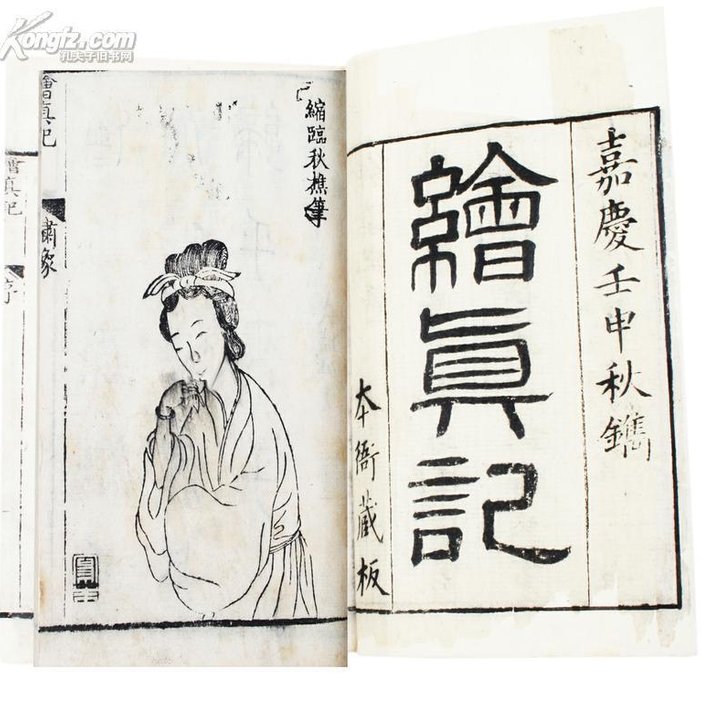 Kongfz.com
孔夫子旧书网
嘉慶壬申秋鐫
繪真記
本衙藏板
縮臨秋樵筆
繪真記
繡像
繪真記
序